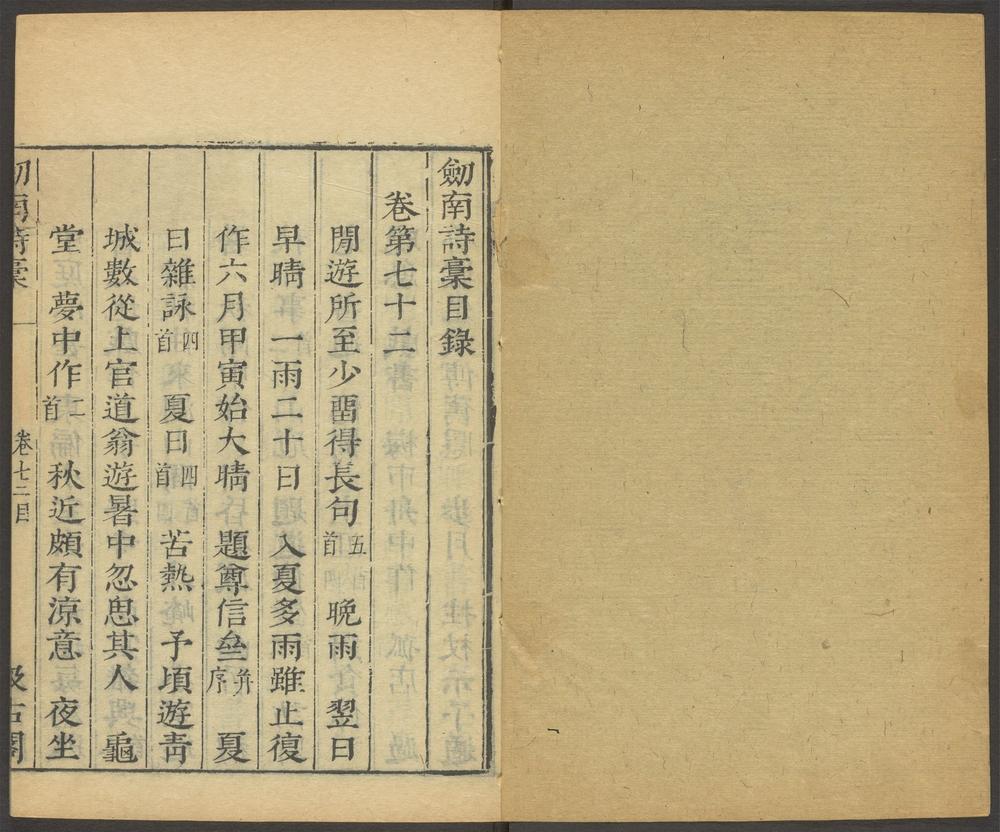 劒南詩稾目錄
卷第七十二
閒遊所至少畱得長句五首 晚雨 翌日
早晴 一雨二十日 入夏多雨雖止復
作六月甲寅始大晴 題尊信壘并序 夏
日雜詠四首 夏日四首 苦熱 予頃遊青
城數從上官道翁遊暑中忽思其人 龜
堂 夢中作二首 秋近頗有涼意 夜坐
劒南詩稾 卷七二目 汲古閣